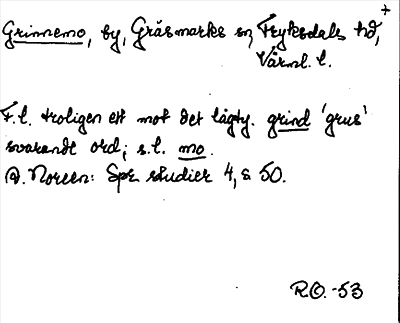 +
Grinnemo, by, Gräsmarks sn, Fryksdals hd,
Värml. l.
F.l. troligen ett mot det lågty. grind 'grus'
svarande ord; s.l. mo.
A. Noreen: Spr. studier 4, s 50.
R.O. -53